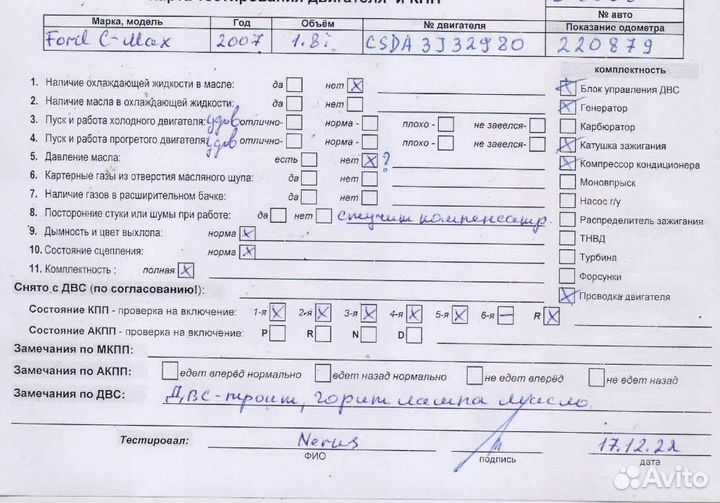 Карта тестирования двигателя и КПП
№ авто
Марка, модель Год Объём № двигателя Показание одометра
Ford C-Max 2007 1.8i CSDA 3J32980 220879
комплектность
1. Наличие охлаждающей жидкости в масле: да нет X
Блок управления ДВС
2. Наличие масла в охлаждающей жидкости: да нет
Генератор
3. Пуск и работа холодного двигателя: удов отлично- норма- плохо- не завелся-
Карбюратор
4. Пуск и работа прогретого двигателя: удов отлично- норма- плохо- не завелся-
Катушка зажигания
5. Давление масла: есть нет X ?
Компрессор кондиционера
6. Картерные газы из отверстия масляного щупа: да нет
Моновпрыск
7. Наличие газов в расширительном бачке: да нет
Насос г/у
8. Посторонние стуки или шумы при работе: да нет стучит компенсатр.
Распределитель зажигания
9. Дымность и цвет выхлопа: норма X
ТНВД
10. Состояние сцепления: норма X
Турбина
11. Комплектность: полная X
Форсунки
Снято с ДВС (по согласованию!):
Проводка двигателя
Состояние КПП - проверка на включение: 1-я X 2-я X 3-я X 4-я X 5-я X 6-я — R X
Состояние АКПП - проверка на включение: P R N D
Замечания по МКПП:
Замечания по АКПП: едет вперёд нормально едет назад нормально не едет вперёд не едет назад
Замечания по ДВС: ДВС-троит, горит лампа масло.
Тестировал: Nerus 17.12.22
ФИО подпись дата
Avito